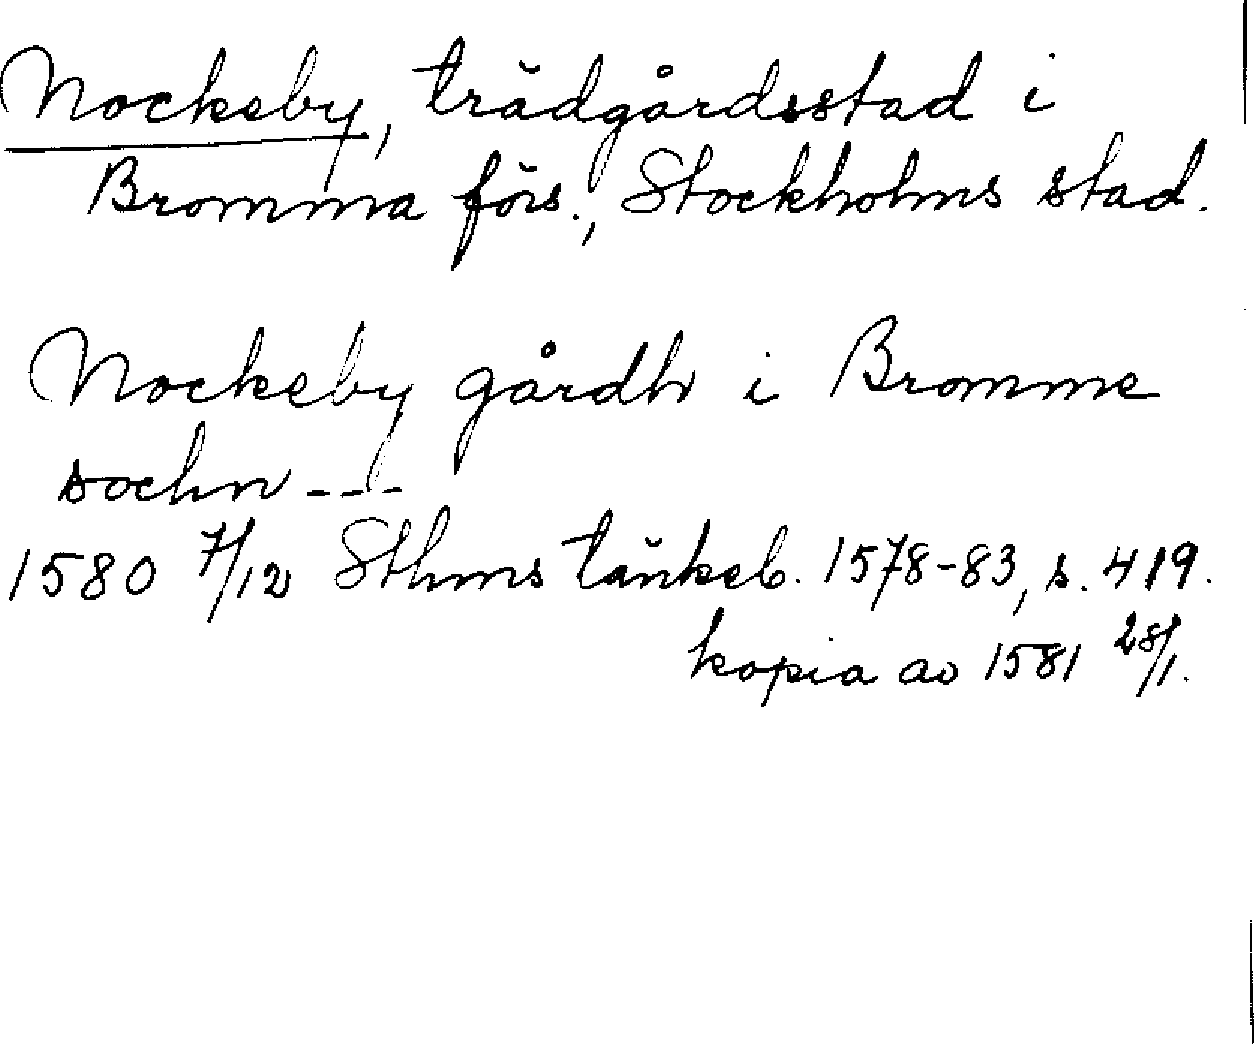 Nockeby, trädgårdsstad i
Bromma förs., Stockholms stad.
Nockeby gårdh i Bromme
sochn ---
1580 7/12 Sthms tänkeb. 1578-83, s. 419.
kopia av 1581 28/1.